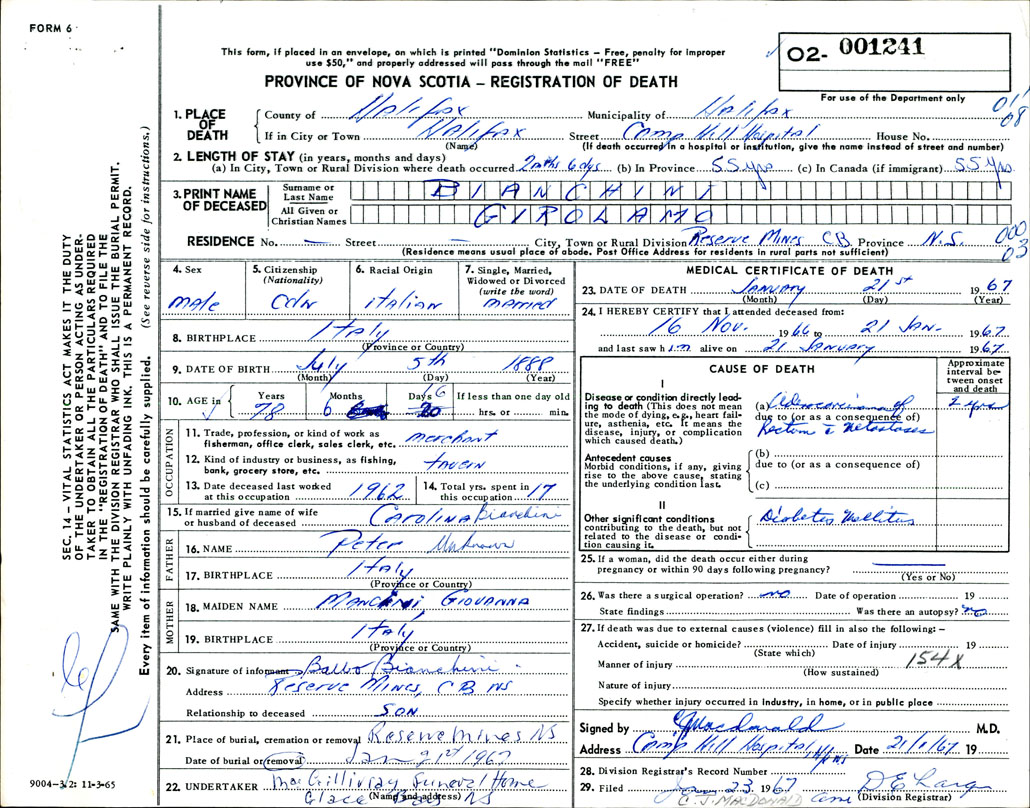 FORM 6
This form, if placed in an envelope, on which is printed "Dominion Statistics – Free, penalty for improper
use $50," and properly addressed will pass through the mail "FREE"
PROVINCE OF NOVA SCOTIA – REGISTRATION OF DEATH
O2- 001241
For use of the Department only
SEC. 14 – VITAL STATISTICS ACT MAKES IT THE DUTY
OF THE UNDERTAKER OR PERSON ACTING AS UNDER-
TAKER TO OBTAIN ALL THE PARTICULARS REQUIRED
IN THE "REGISTRATION OF DEATH" AND TO FILE THE
SAME WITH THE DIVISION REGISTRAR WHO SHALL ISSUE THE BURIAL PERMIT.
WRITE PLAINLY WITH UNFADING INK. THIS IS A PERMANENT RECORD.
Every item of information should be carefully supplied. (See reverse side for instructions.)
1. PLACE OF DEATH County of Halifax Municipality of Halifax 011
If in City or Town Halifax Street Camp Hill Hospital House No. 08
(Name) (If death occurred in a hospital or institution, give the name instead of street and number)
2. LENGTH OF STAY (in years, months and days)
(a) In City, Town or Rural Division where death occurred 2 mths 6 dys (b) In Province 55 yrs (c) In Canada (if immigrant) 55 yrs
3. PRINT NAME OF DECEASED Surname or Last Name BIANCHINI
All Given or Christian Names GIROLAMO
RESIDENCE No. — Street — City, Town or Rural Division Reserve Mines CB Province N.S. 000 03
(Residence means usual place of abode. Post Office Address for residents in rural parts not sufficient)
4. Sex male
5. Citizenship (Nationality) CDN
6. Racial Origin italian
7. Single, Married, Widowed or Divorced (write the word) married
8. BIRTHPLACE Italy
(Province or Country)
9. DATE OF BIRTH July 5th 1888
(Month) (Day) (Year)
10. AGE in Years 78 Months 6 Days 6 20 If less than one day old hrs. or min.
OCCUPATION
11. Trade, profession, or kind of work as fisherman, office clerk, sales clerk, etc. merchant
12. Kind of industry or business, as fishing, bank, grocery store, etc. tavern
13. Date deceased last worked at this occupation 1962
14. Total yrs. spent in this occupation 17
15. If married give name of wife or husband of deceased Carolina Bianchini
FATHER
16. NAME Peter Unknown
17. BIRTHPLACE Italy
(Province or Country)
MOTHER
18. MAIDEN NAME Mancini, Giovanna
19. BIRTHPLACE Italy
(Province or Country)
20. Signature of informant Balbo Bianchini
Address Reserve Mines, CB NS
Relationship to deceased SON
21. Place of burial, cremation or removal Reserve Mines NS
Date of burial or removal Jan 21st 1967
22. UNDERTAKER MacGillivray Funeral Home
(Name and address) Glace Bay NS
9004-3/2: 11-3-65
MEDICAL CERTIFICATE OF DEATH
23. DATE OF DEATH January 21st 1967
(Month) (Day) (Year)
24. I HEREBY CERTIFY that I attended deceased from:
16 Nov. 1966 to 21 Jan. 1967
and last saw him alive on 21 January 1967
CAUSE OF DEATH
Approximate interval between onset and death
I
Disease or condition directly leading to death (This does not mean the mode of dying, e.g., heart failure, asthenia, etc. It means the disease, injury, or complication which caused death.)
(a) Adenocarcinoma of 2 yrs
due to (or as a consequence of)
Rectum c̄ Metastases
Antecedent causes
Morbid conditions, if any, giving rise to the above cause, stating the underlying condition last.
(b)
due to (or as a consequence of)
(c)
II
Other significant conditions contributing to the death, but not related to the disease or condition causing it.
Diabetes Mellitus
25. If a woman, did the death occur either during pregnancy or within 90 days following pregnancy? —
(Yes or No)
26. Was there a surgical operation? no Date of operation 19
State findings Was there an autopsy? no
27. If death was due to external causes (violence) fill in also the following: –
Accident, suicide or homicide? Date of injury 19
(State which)
Manner of injury 154X
(How sustained)
Nature of injury
Specify whether injury occurred in Industry, in home, or in public place
Signed by Macdonald M.D.
Address Camp Hill Hospital, Date 21/1/67 19
28. Division Registrar's Record Number
29. Filed Jan 23 1967
C. J. MACDONALD (Division Registrar)